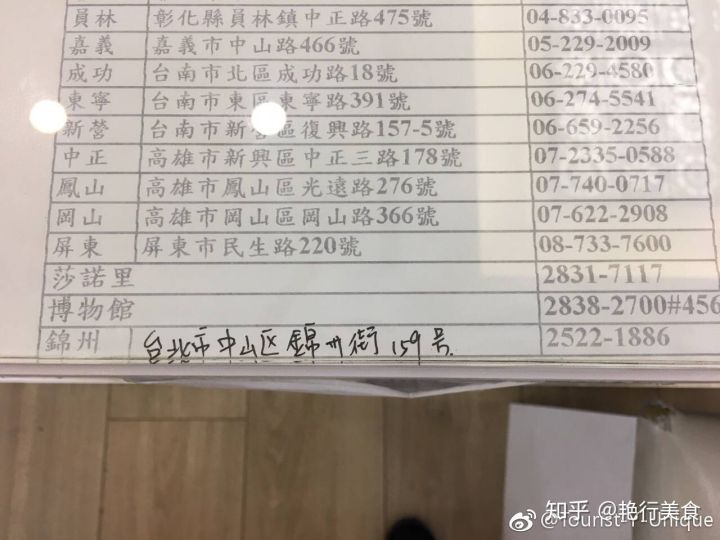 員林 彰化縣員林鎮中正路475號 04-833-0095
嘉義 嘉義市中山路466號 05-229-2009
成功 台南市北區成功路18號 06-229-4580
東寧 台南市東區東寧路391號 06-274-5541
新營 台南市新營區復興路157-5號 06-659-2256
中正 高雄市新興區中正三路178號 07-2335-0588
鳳山 高雄市鳳山區光遠路276號 07-740-0717
岡山 高雄市岡山區岡山路366號 07-622-2908
屏東 屏東市民生路220號 08-733-7600
莎諾里 2831-7117
博物館 2838-2700#456
錦州 台北市中山区錦州街159号. 2522-1886
知乎 @艳行美食
@Tourist丫Unique